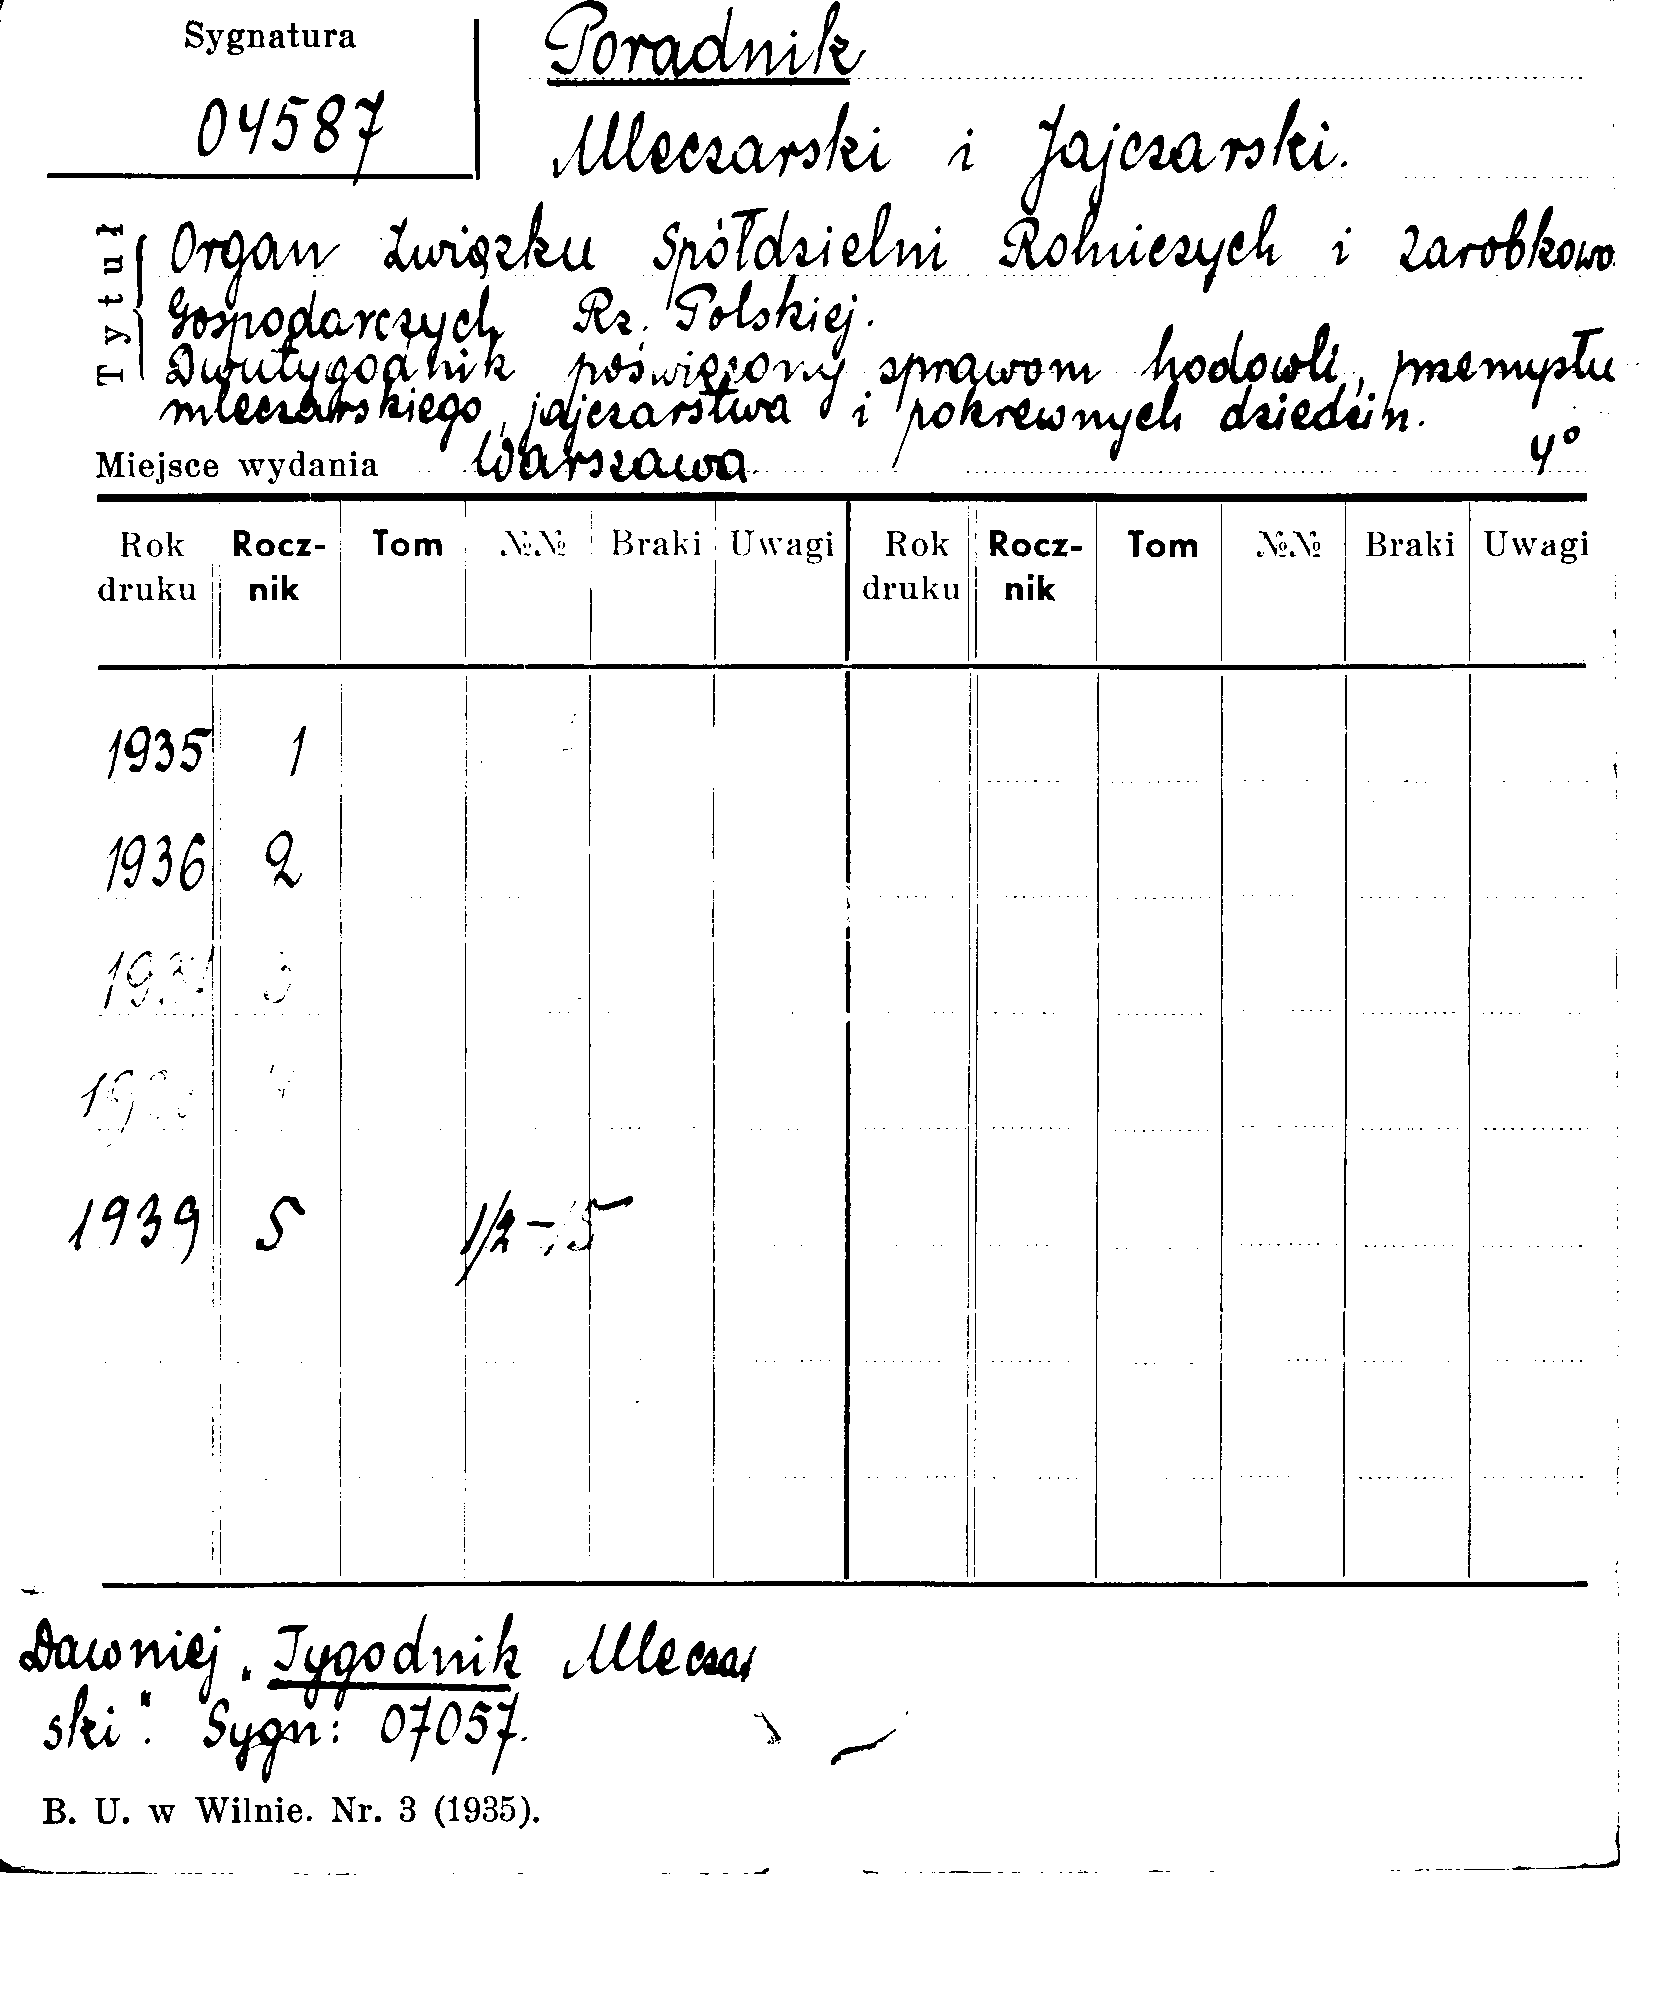 Sygnatura
04587
Poradnik
Mleczarski i Jajczarski.
Tytuł
Organ Związku Spółdzielni Rolniczych i Zarobkowo
Gospodarczych Rz. Polskiej.
Dwutygodnik poświęcony sprawom hodowli, przemysłu
mleczarskiego, jajczarstwa i pokrewnych dziedzin.
Miejsce wydania Warszawa 4°
Rok druku Rocz-nik Tom №№ Braki Uwagi Rok druku Rocz-nik Tom №№ Braki Uwagi
1935 1
1936 2
3
4
1939 5 1/2-15
Dawniej „Tygodnik Mleczar
ski". Sygn: 07057.
B. U. w Wilnie. Nr. 3 (1935).